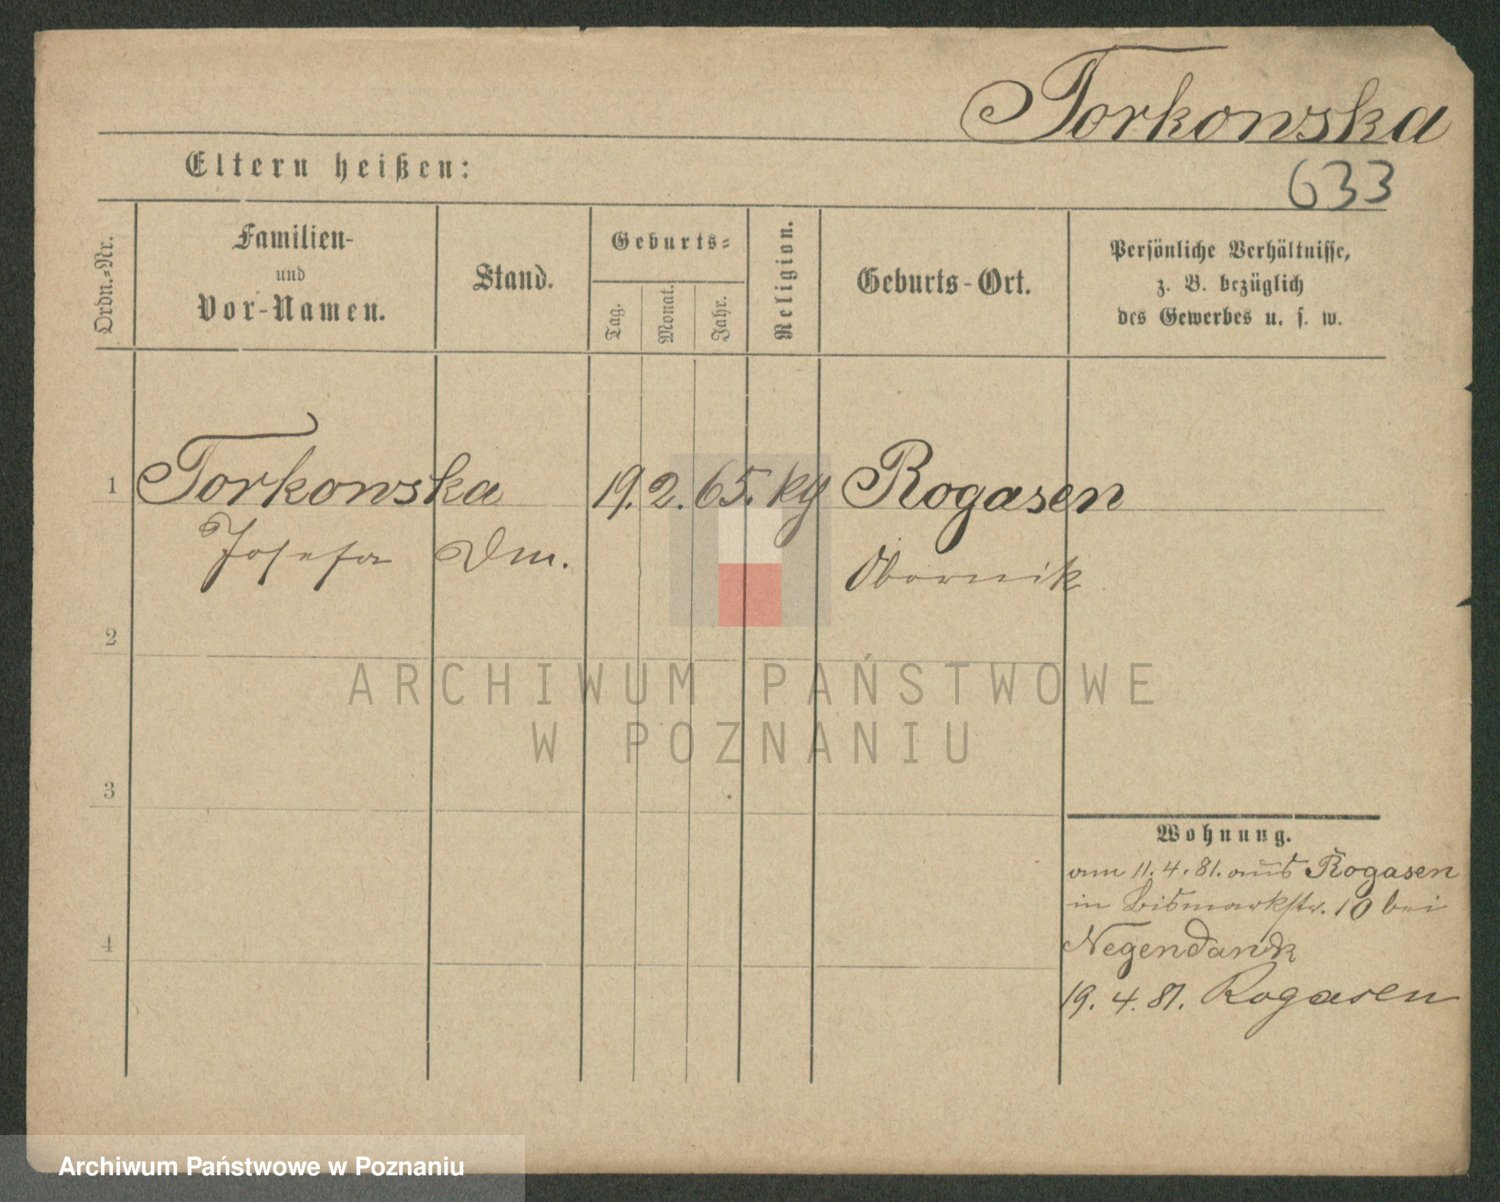 Torkowska
633
Eltern heißen:
Ordn.-Nr.
Familien-
und
Vor-Namen.
Stand.
Geburts-
Tag.
Monat.
Jahr.
Religion.
Geburts-Ort.
Persönliche Verhältnisse,
z. B. bezüglich
des Gewerbes u. s. w.
1 Torkowska 19. 2. 65. kg Rogasen
Josefa Dm. Obornik
2
ARCHIWUM PAŃSTWOWE
W POZNANIU
3
Wohnung.
am 11. 4. 81. aus Rogasen
in Bismarkstr. 10 bei
4
Negendank
19. 4. 81. Rogasen
Archiwum Państwowe w Poznaniu